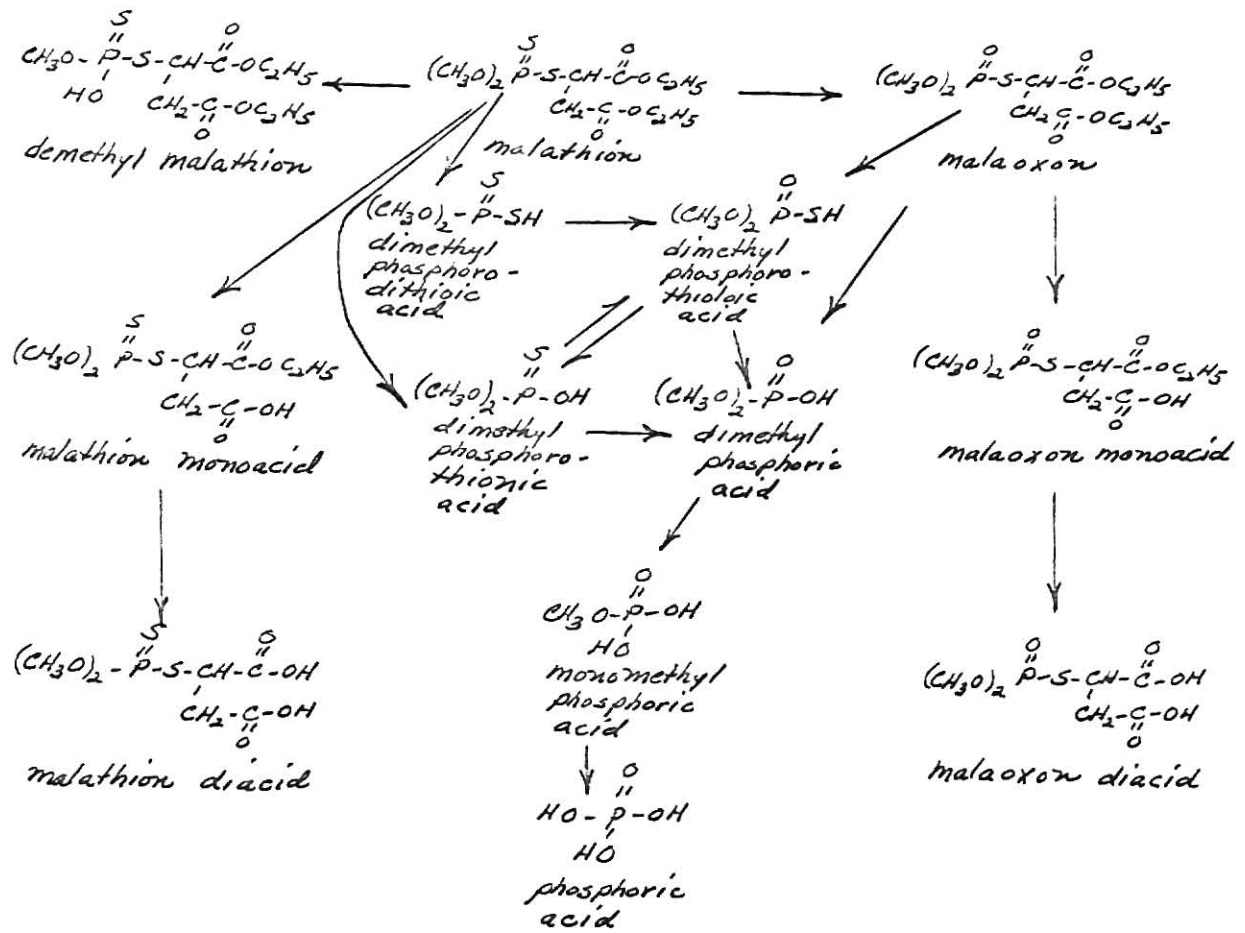 S
CH3O-P-S-CH-C-OC2H5
O
HO
CH2-C-OC2H5
O
demethyl malathion
S
(CH3O)2 P-S-CH-C-OC2H5
O
CH2-C-OC2H5
O
malathion
O
(CH3O)2 P-S-CH-C-OC2H5
O
CH2 C-OC2H5
O
malaoxon
S
(CH3O)2-P-SH
dimethyl
phosphoro-
dithioic
acid
O
(CH3O)2 P-SH
dimethyl
phosphoro-
thioloic
acid
S
(CH3O)2 P-S-CH-C-OC2H5
O
CH2-C-OH
O
malathion monoacid
S
(CH3O)2-P-OH
dimethyl
phosphoro-
thionic
acid
O
(CH3O)2-P-OH
dimethyl
phosphoric
acid
O
(CH3O)2 P-S-CH-C-OC2H5
O
CH2-C-OH
O
malaoxon monoacid
S
(CH3O)2-P-S-CH-C-OH
O
CH2-C-OH
O
malathion diacid
O
CH3O-P-OH
HO
monomethyl
phosphoric
acid
O
(CH3O)2 P-S-CH-C-OH
O
CH2-C-OH
O
malaoxon diacid
O
HO-P-OH
HO
phosphoric
acid